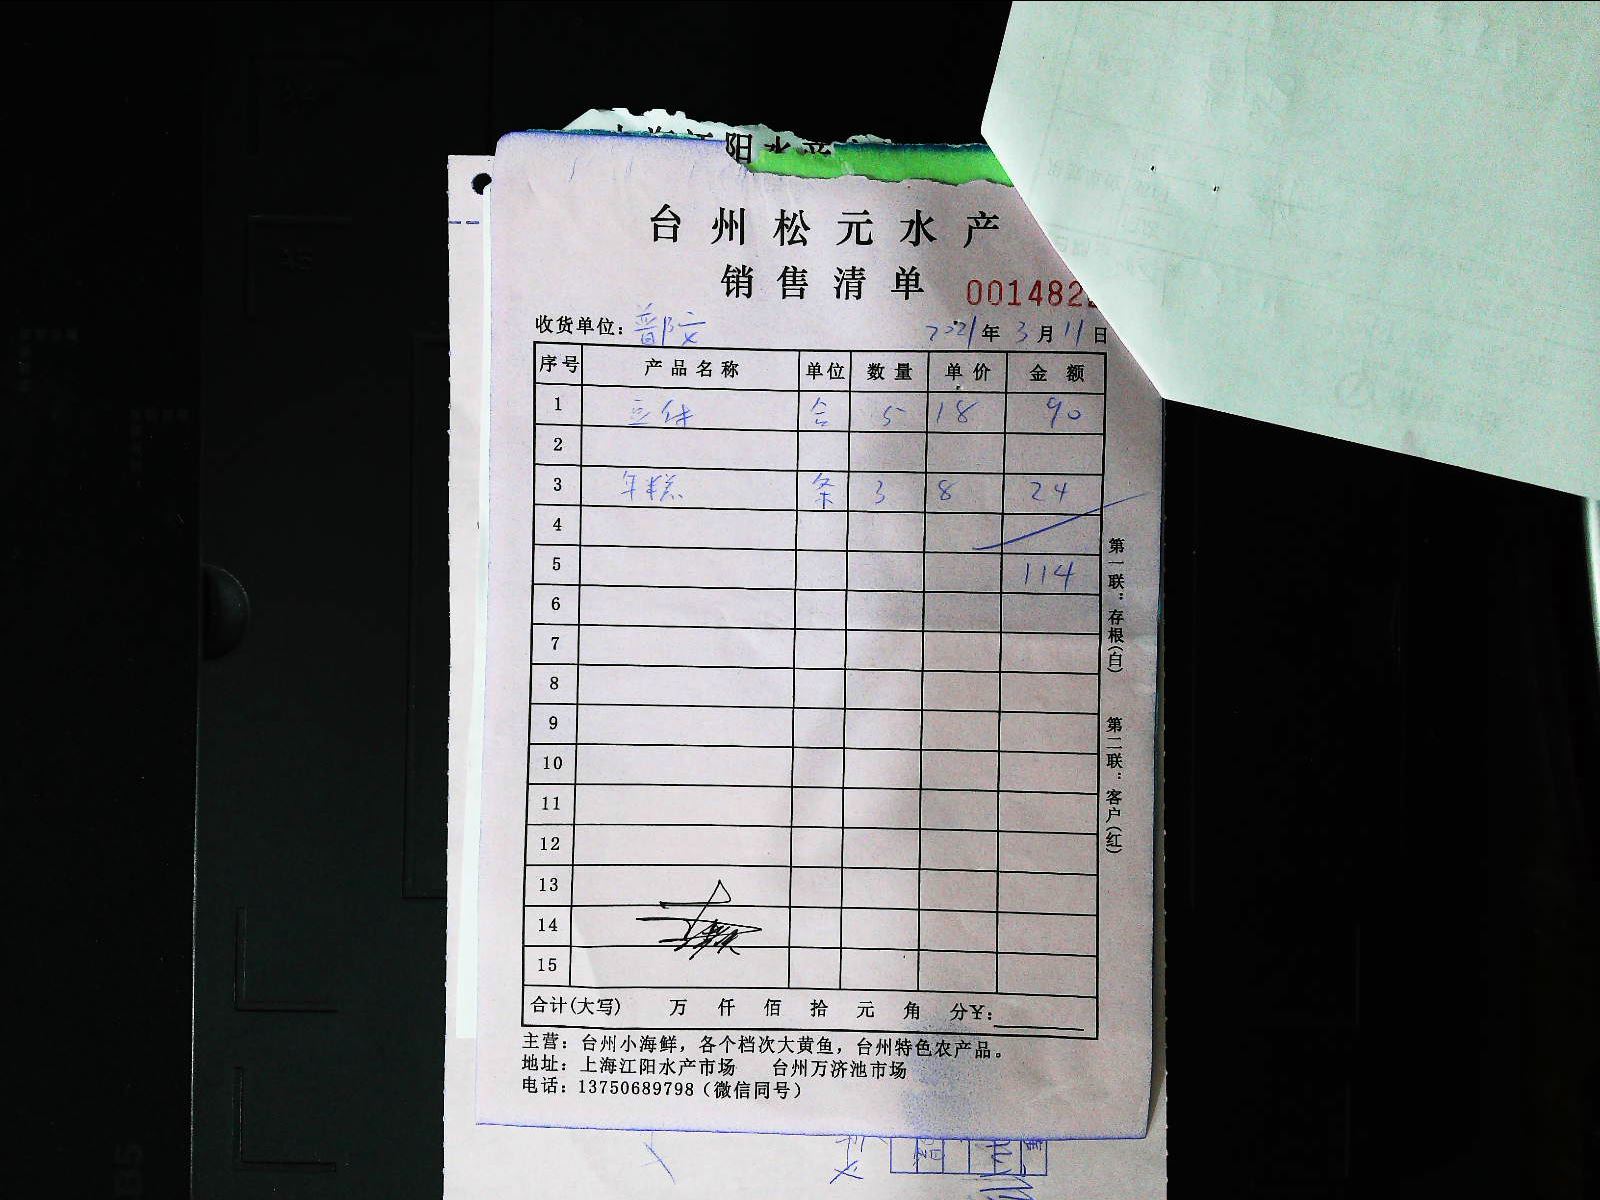 阳水产
台州松元水产
销售清单
001482
收货单位：
2021年3月11日
序号 产品名称 单位 数量 单价 金额
1 合 5 18 90
2
3 年糕 条 3 8 24
4
5 114
6
7
8
9
10
11
12
13
14
15
合计(大写) 万 仟 佰 拾 元 角 分￥：
主营：台州小海鲜，各个档次大黄鱼，台州特色农产品。
地址：上海江阳水产市场 台州万济池市场
电话：13750689798（微信同号）
第一联：存根(白)
第二联：客户(红)